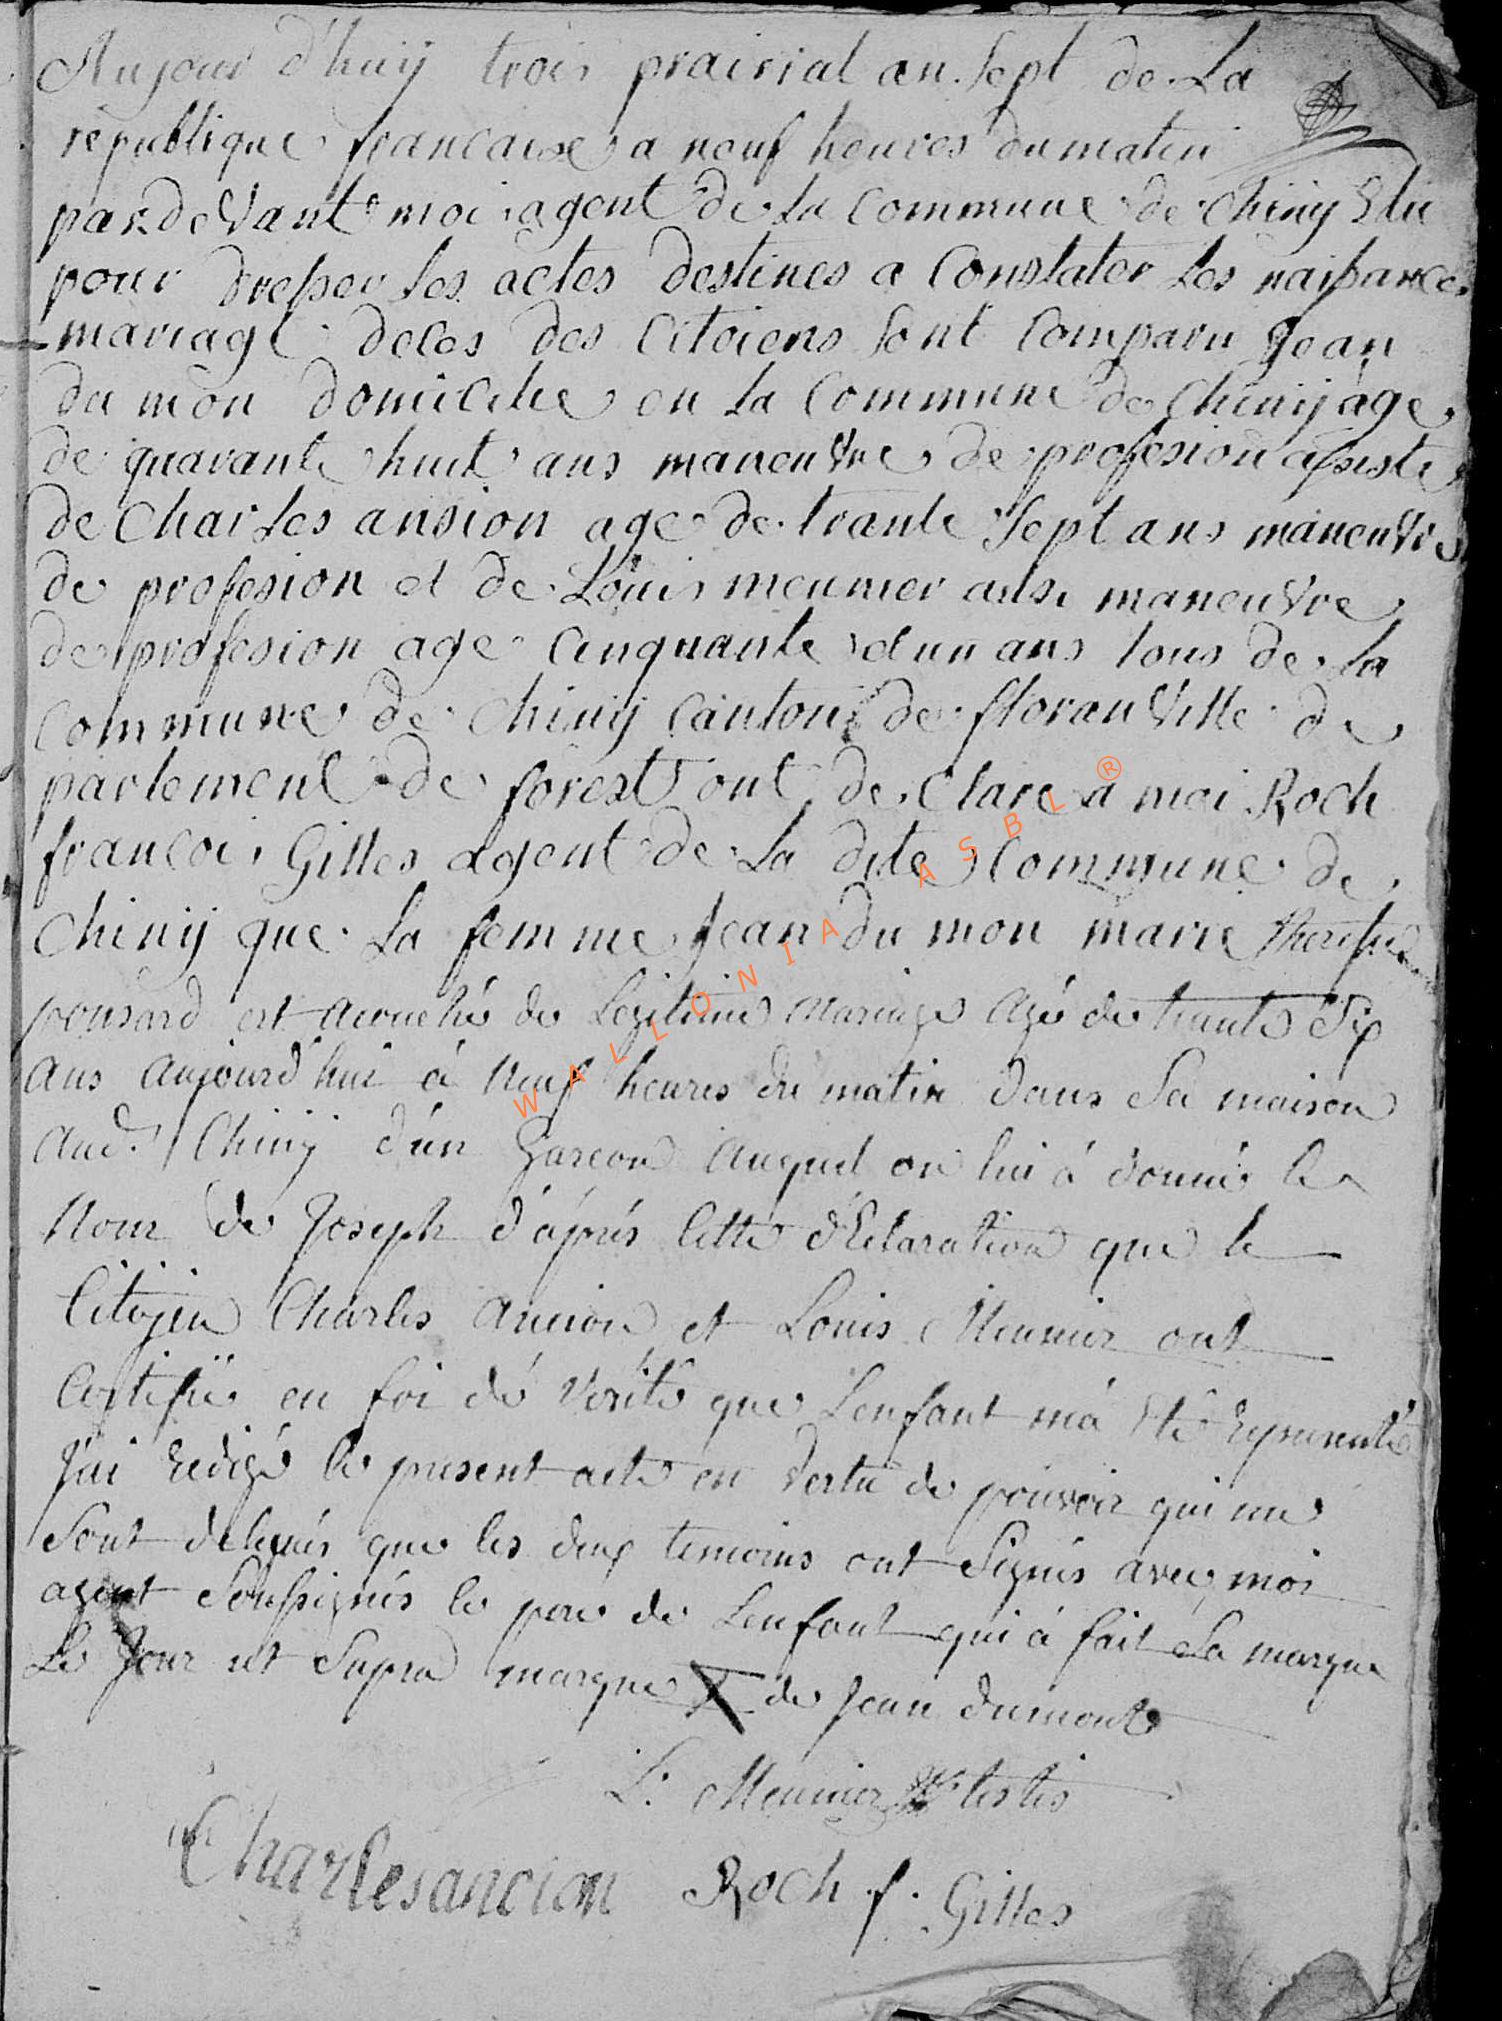 Aujour d'huij trois prairial an Sept de La
republique francaise a neuf heures du matin
par devant moi agent de La Commune de Chinij Elu
pour dresser Les actes destines a Constater Les naissances
mariage deces des Citoiens Sont Comparu Jean
du mon domicilie en La Commune de Chinij age
de quarante huit ans maneuvre de profesion assiste
de Charles ansion age de trante Sept ans maneuvre
de profesion et de Louis meunier ausi maneuvre
de profesion age Cinquante et un ans tous de La
Commune de Chinij Canton de floranville de
partement de forest ont de Clare a moi Roch
francois Gilles agent de La dite Commune de
Chinij que La femme Jean du mon marie therese
ponsard est acouché de Legitime Mariage Agé de trante Six
Ans Aujourd'hui à Neuf heures du matin dans Sa maison
Aud. Chinij d'un Garçon Auquel on lui à donné le
Nom de Joseph d'après Cette déclaration que le
Citoijen Charles Ancion et Louis Meunier ont
Certifiie en foi de Verité que L'enfant m'a Eté Representé
J'ai Redigé le present acte en Vertu de pouvoir qui me
Sont delegués que les deux temoins ont Signés avec moi
agent Soussignés le pere de L'enfant qui à fait Sa marque
Le Jour ut Supra marque X de Jean dumont
L. Meunier testis
Charlesancion Roch f. Gilles
WALLONIA ASBL ®